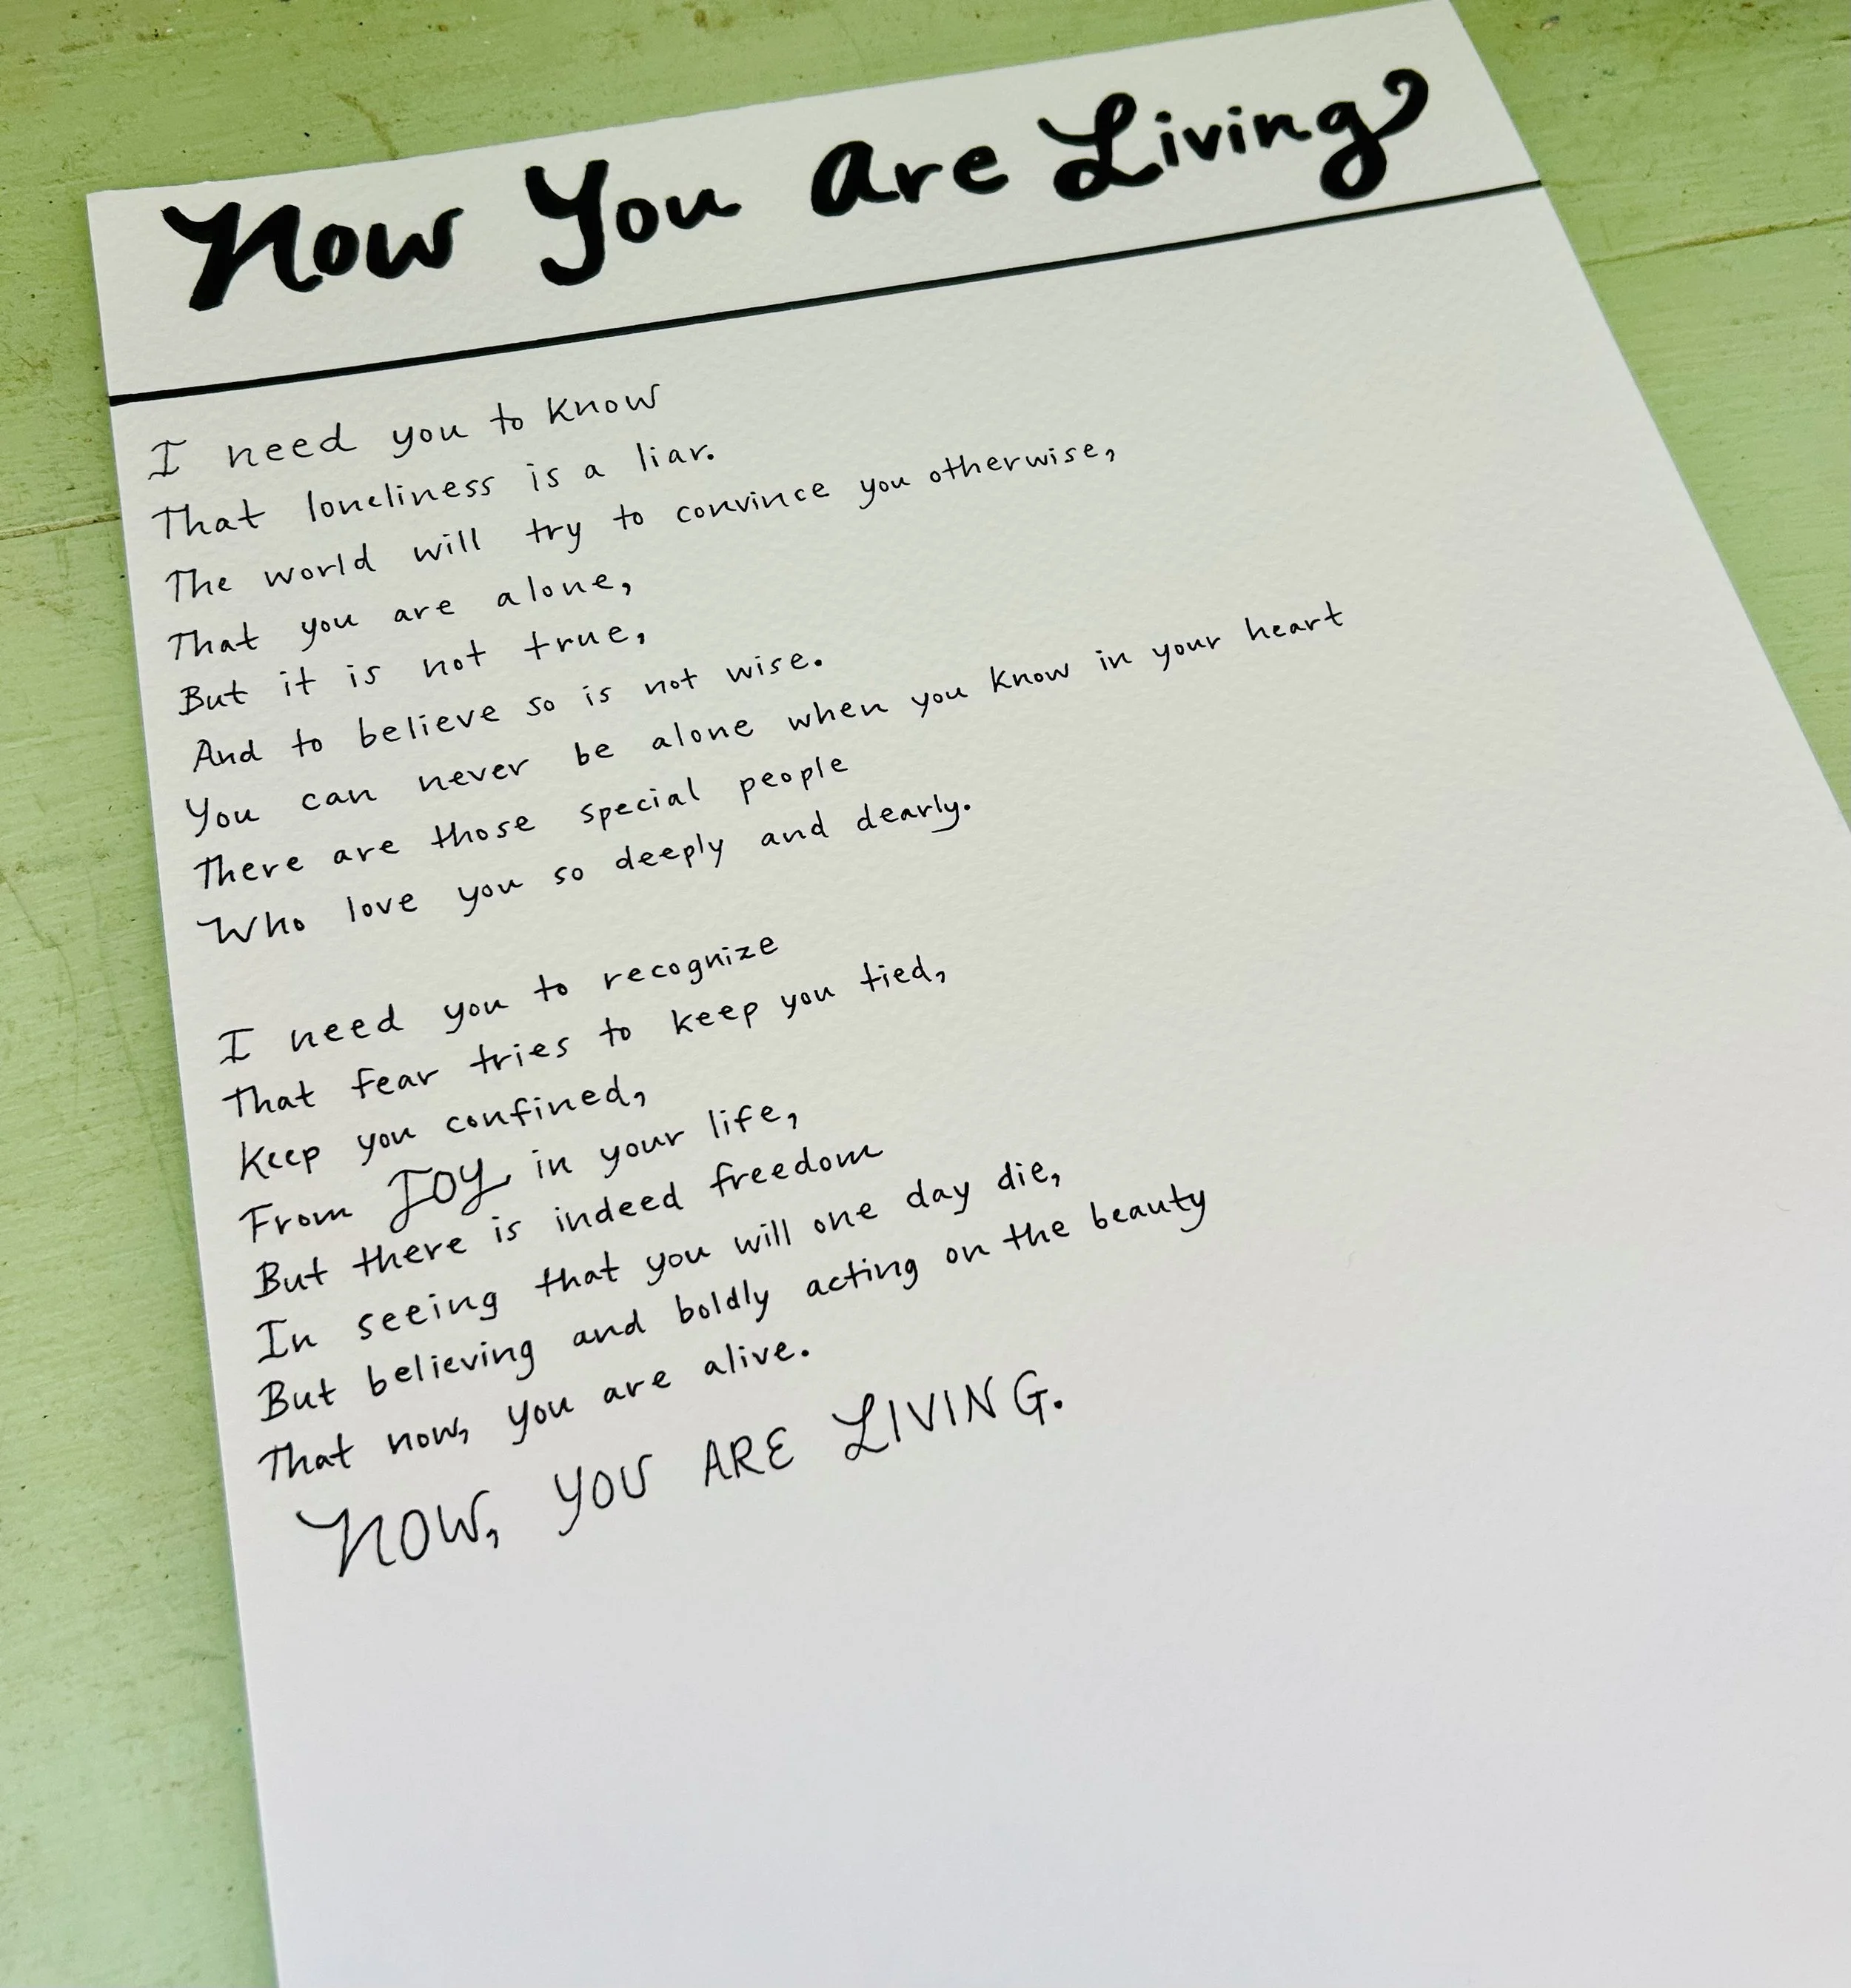 Now You Are Living
I need you to know
That loneliness is a liar.
The world will try to convince you otherwise,
That you are alone,
But it is not true,
And to believe so is not wise.
You can never be alone when you know in your heart
There are those special people
Who love you so deeply and dearly.
I need you to recognize
That fear tries to keep you tied,
Keep you confined,
From JOY in your life,
But there is indeed freedom
In seeing that you will one day die,
But believing and boldly acting on the beauty
That now, you are alive.
NOW, YOU ARE LIVING.